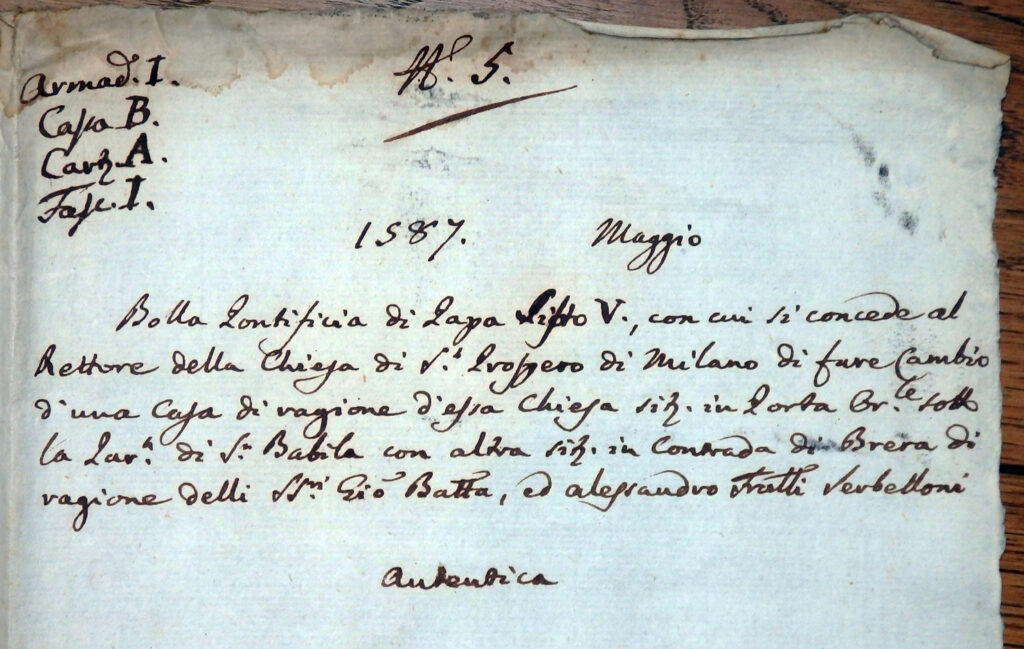 Armad. I.
N.° 5.
Cassa B.
Cart. A.
Fasc. I.
1587. Maggio
Bolla Pontificia di Papa Sisto V., con cui si concede al
Rettore della Chiesa di S.ⁿ Prospero di Milano di fare Cambio
d'una Casa di ragione d'essa Chiesa sit. in Porta Or.le sotto
la Par.ª di S.ⁿ Babila con altra sit. in Contrada di Brera di
ragione delli SS.ri Gio Batta, ed Alessandro Fratelli Serbelloni
Autentica